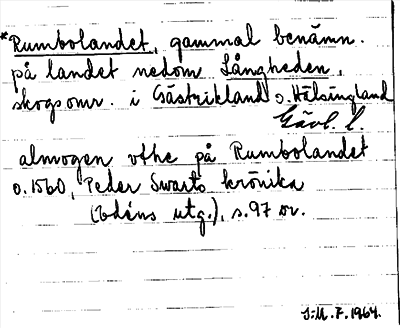 *Rumbolandet, gammal benämn.
på landet nedom Långheden,
skogsomr. i Gästrikland o. Hälsingland
Gävl. l.
almogen vthe på Rumbolandet
o. 1560, Peder Swarts krönika
(Edéns utg.), s. 97 m.
I:M. F. 1964.